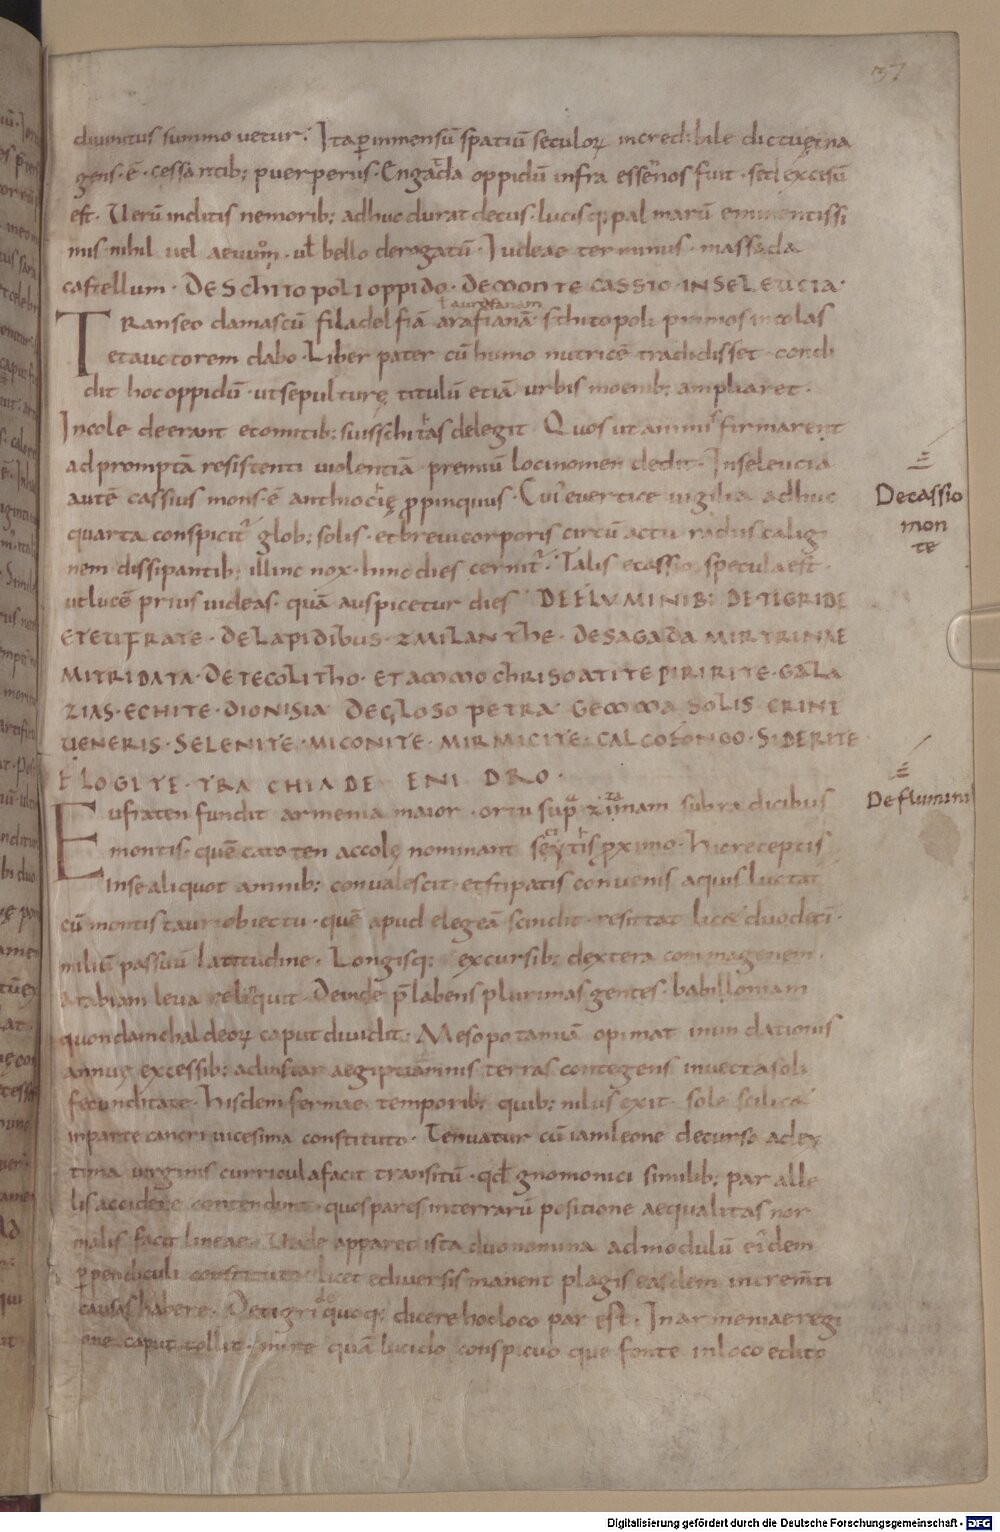 37
diuinitus summo uetur. Ita p̄ inmensū spatiū seculoꝝ incredibile dictu ęterna
gens · ē · cessantib; puerperiis · Engadda oppidū infra essenos fuit · sed excisū
est. Uerū inclitis nemorib; adhuc durat decus · lucisq; palmarū eminentissi
mis nihil uel aeuo · ul̄ bello derogatū · Iudeae terminus · massada
castellum · DESCHITOPOLI OPPIDO · DEMONTE CASSIO · INSELEUCIA ·
Transeo damascū filadelfiā arafianā schitopoli primos incolas
et auctorem dabo · Liber pater cū humo nutricē tradidisset condi
dit hoc oppidū · ut sepulturę titulū etiā urbis moenib; ampliaret ·
Incole deerant e comitib; suis schitas delegit Quos ut animi firmarent
ad promptā resistenti uiolentiā premiū loci nomen dedit · Inseleucia
autē cassius mons · ē anthiocię ꝓpinquus · Cui e uertice uigilia adhuc
quarta conspicit̄ glob; solis · et breui corporis circū actu radiis caligi
nem dissipantib; illinc nox · hinc dies cernit̄ · Talis e cassio specula est ·
ut lucē prius uideas · quā auspicetur dies DEFLUMINIB; DE TIGRIDE
ET EUFRATE · DE LAPIDIBUS · ZMILANTHE · DESAGADA MIRTRINAE
MITRIDATA · DETECOLITHO · ET AMMOCHRISO ATITE PIRIRITE · GALA
ZIAS · ECHITE · DIONISIA DEGLOSO PETRA GEMMA SOLIS CRINE
UENERIS · SELENITE · MICONITE · MIRMICITE · CALCOFONGO · SIDERITE
FLOGITE · TRACHIA DE ENIDRO ·
Eufraten fundit armenia maior · ortu sup̄ zimam subradicibus
montis · quē catoten accolę nominant scytis ꝓximo · hic receptis
in se aliquot amnib; conualescit et stipatis conuenis aquis luctat
cū montis tauri obiectu · quē apud elegeā scindit · resistat licet duodecī ·
miliū passuū latitudine · Longisq; excursib; dextera commagenem ·
arabiam leua reliquit · Deinde p̄labens plurimas gentes · babilloniam
quondam chaldeoꝝ caput diuidit · Mesopotamiā opimat inundationis
annuę excessib; ad instar aegiptii amnis terras contegens inuecta soli
fecunditate · hisdem fermae temporib; quib; nilus exit · sole scilicet
in parte cancri uicesima constituto · Tenuatur cū iam leone decurso ad ex
tima uirginis curricula facit transitū · qd̄ gnomonici similib; paralle
lis accidere contendunt · quos pares in terrarū positione aequalitas nor
malis facit lineae · Unde apparet ista duo nomina ad modulū eidem
ꝑpendiculi constituta licet e diuersis manent plagis easdem incrementi
causas habere · De tigride quoq; dicere hoc loco par est · In armeniae regi
one caput tollit · mire quā lucido conspicuo que fonte in loco edito
De cassio
mon
te
De flumini
Digitalisierung gefördert durch die Deutsche Forschungsgemeinschaft - DFG